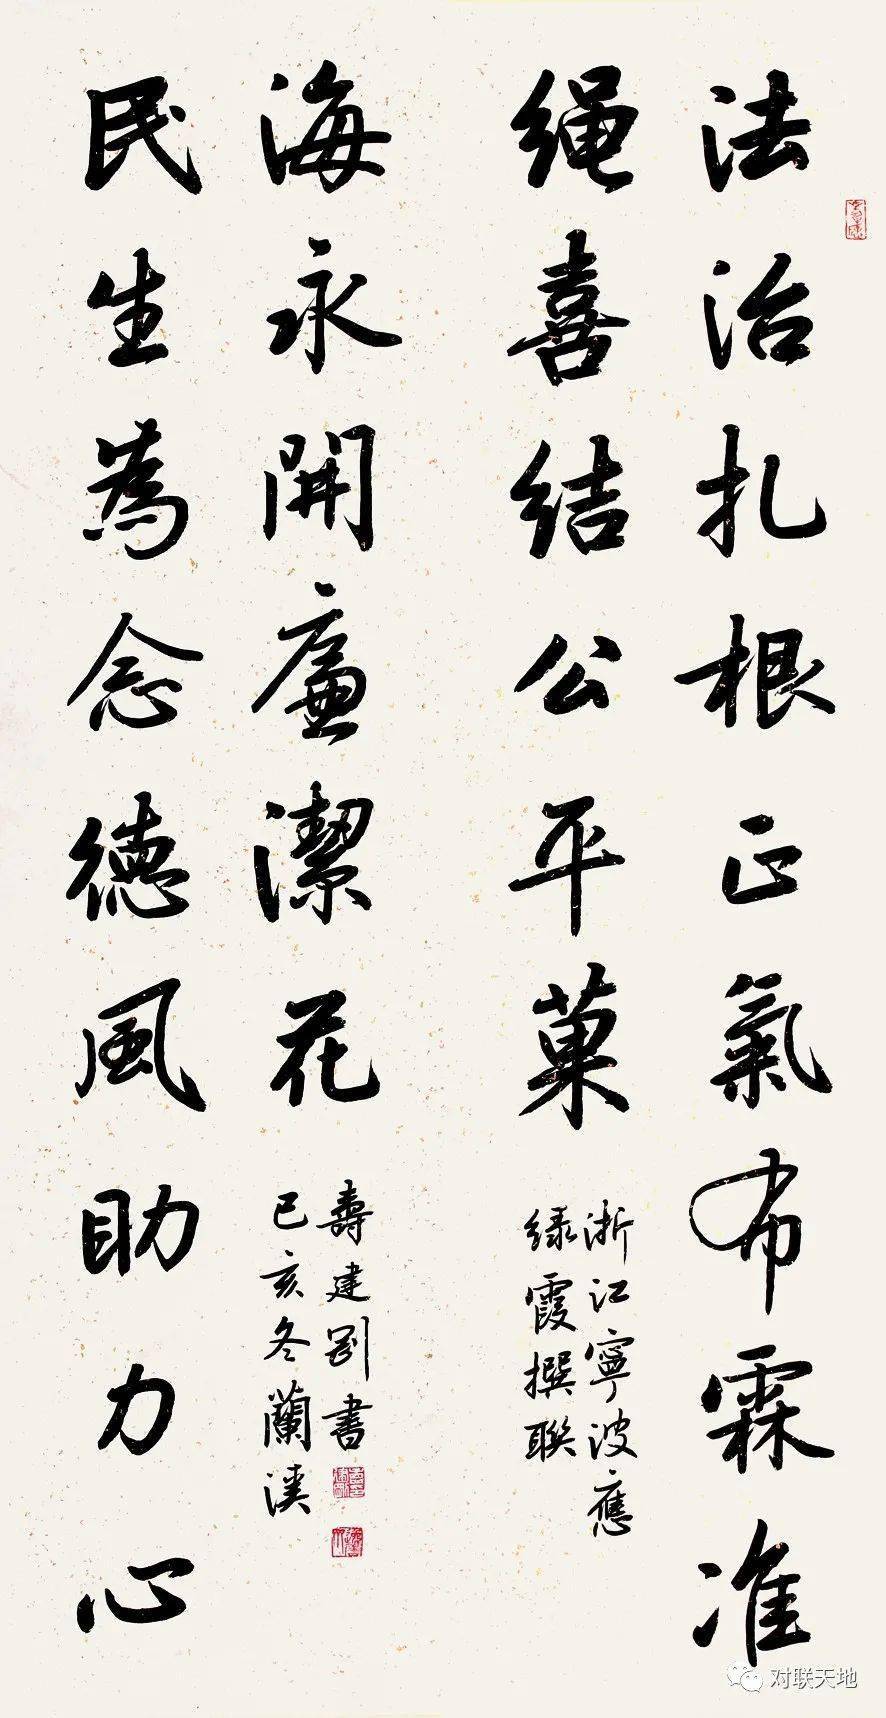 法治扎根正氣布霖准
绳喜结公平菓
浙江寧波應
绿霞撰聯
民生為念德風助力心
海永開廉潔花
己亥冬蘭溪
壽建剛書
对联天地